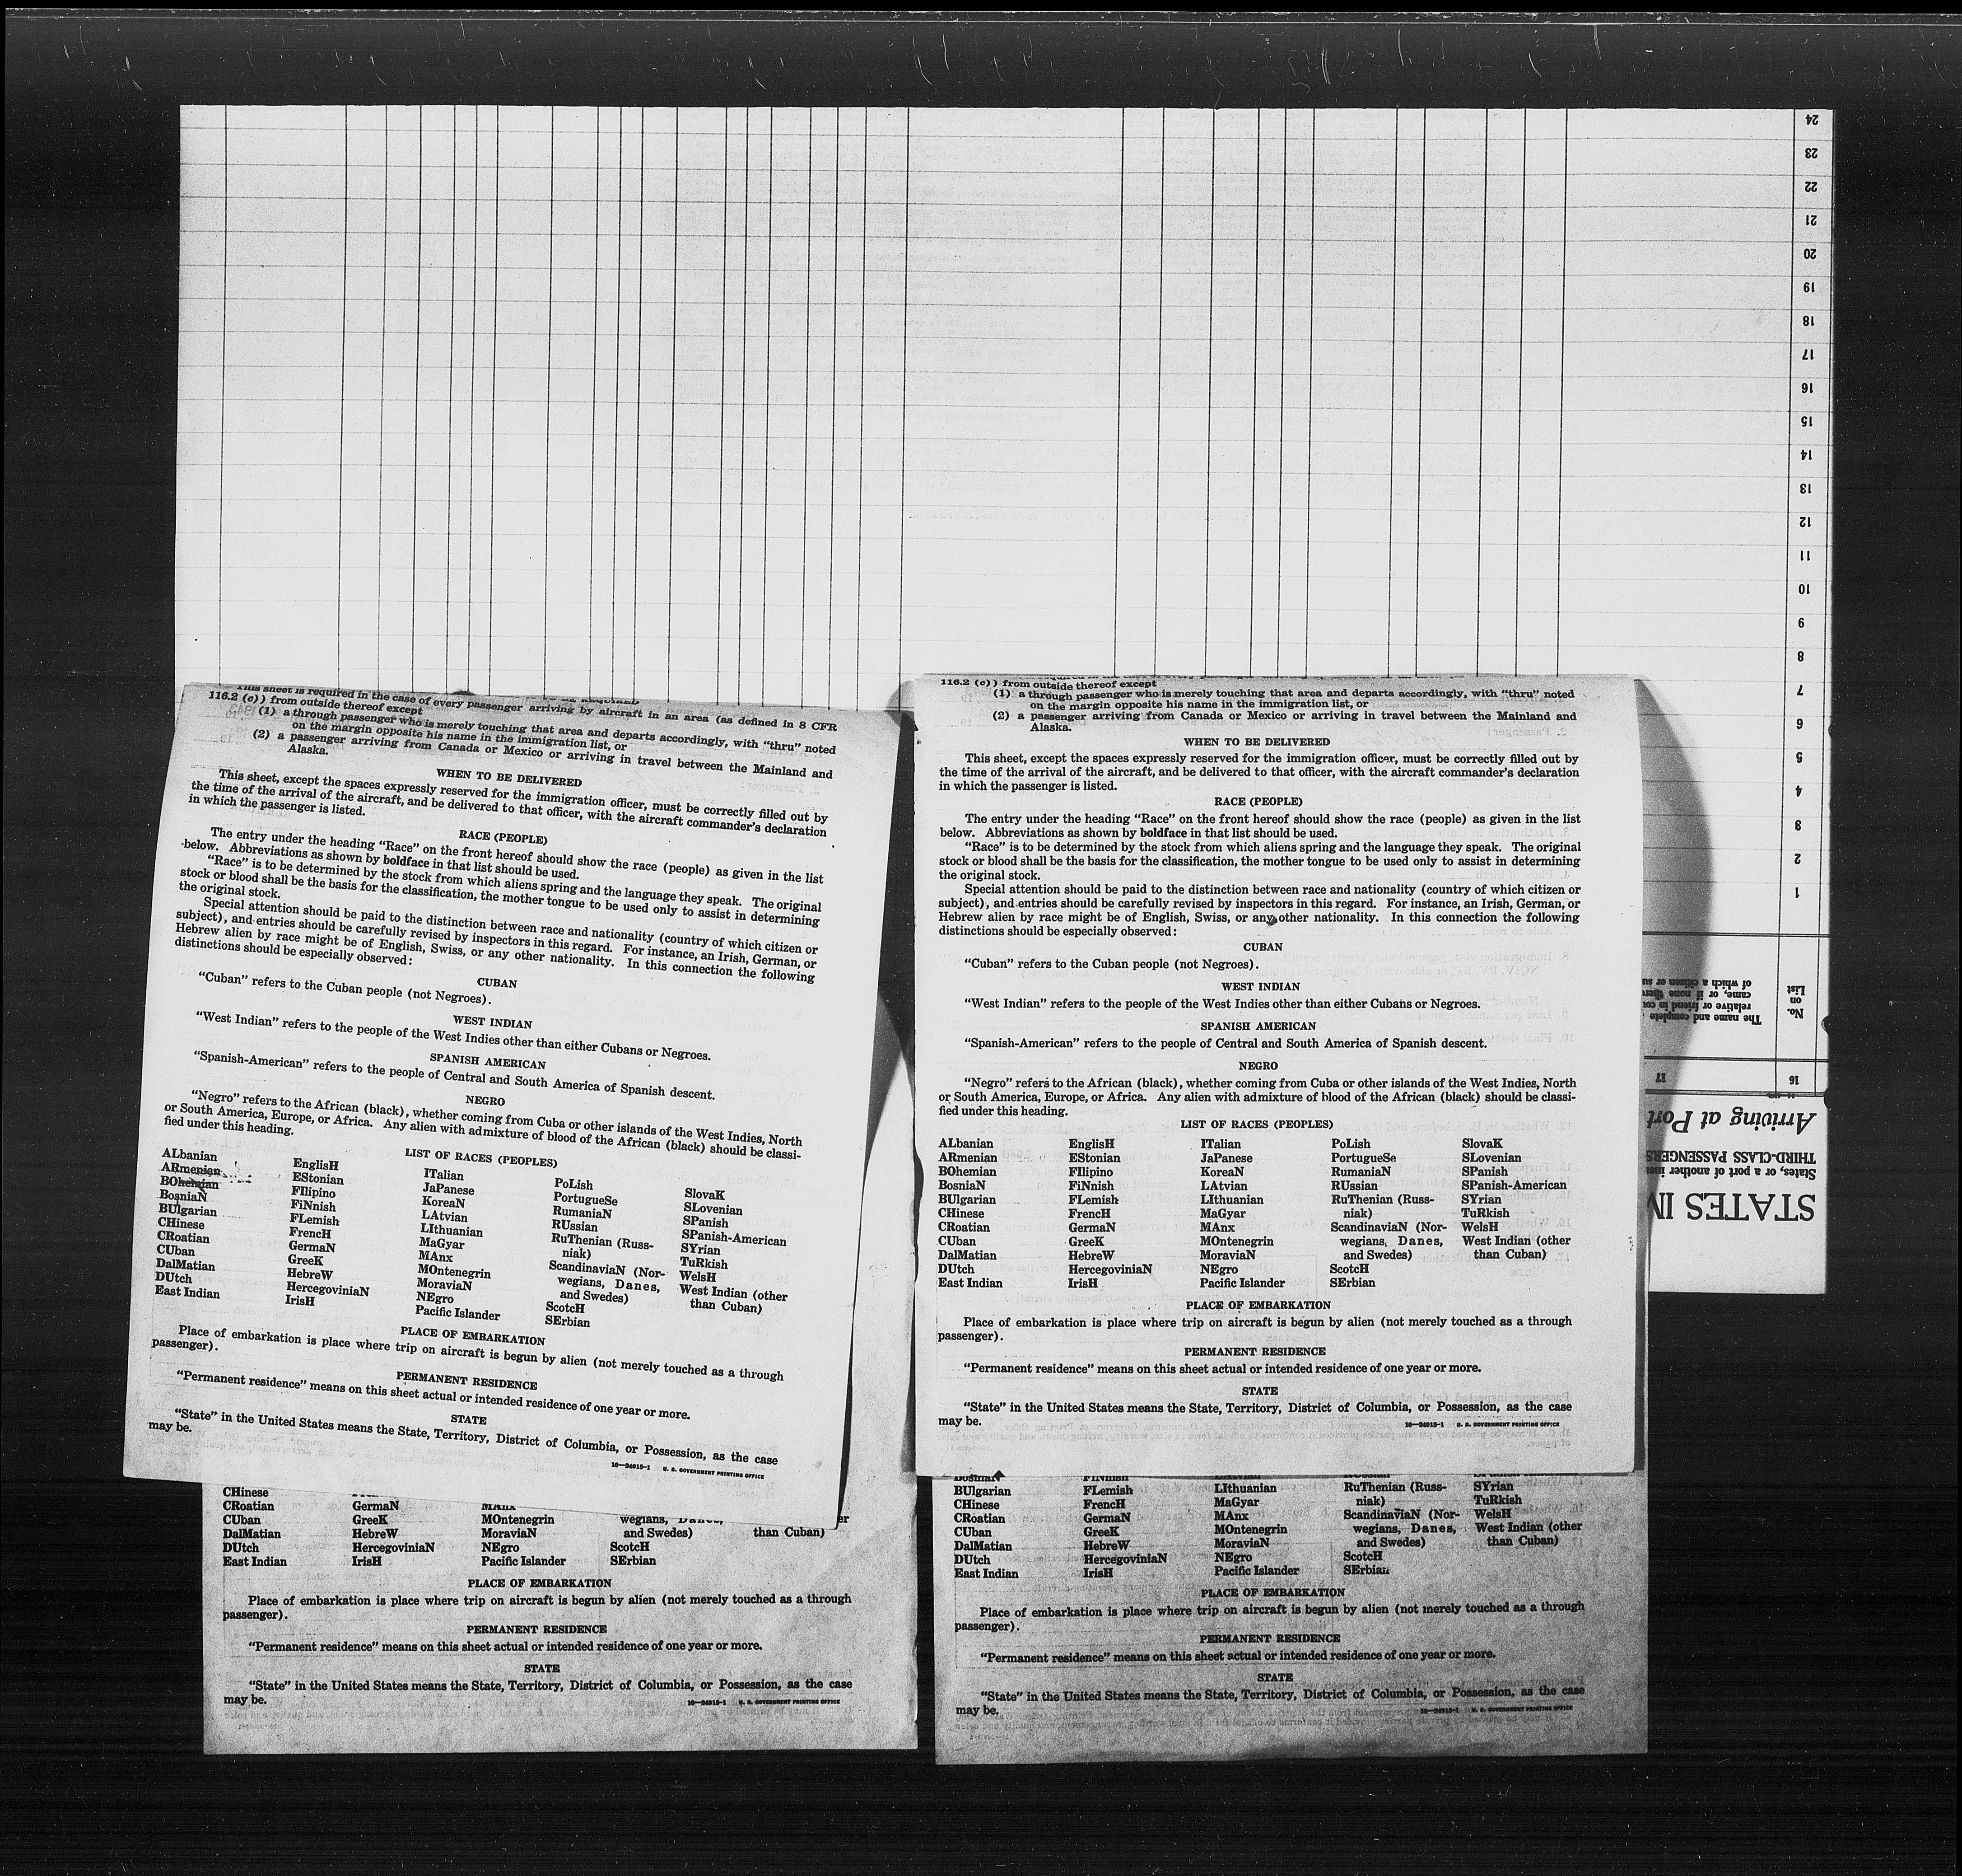 24
23
22
21
20
19
18
17
16
15
14
13
12
11
10
9
8
7
6
5
4
3
2
1
No.
on
List
The name and complete
relative or friend in
came, or if none
of which a citizen or
16
17
Arriving at Port
THIRD-CLASS PASSENGERS
States, or a port of another
STATES
This sheet is required in the case of every passenger arriving by aircraft in an area (as defined in 8 CFR
116.2 (c)) from outside thereof except
(1) a through passenger who is merely touching that area and departs accordingly, with “thru” noted
on the margin opposite his name in the immigration list, or
(2) a passenger arriving from Canada or Mexico or arriving in travel between the Mainland and
Alaska.
WHEN TO BE DELIVERED
This sheet, except the spaces expressly reserved for the immigration officer, must be correctly filled out by
the time of the arrival of the aircraft, and be delivered to that officer, with the aircraft commander’s declaration
in which the passenger is listed.
RACE (PEOPLE)
The entry under the heading “Race” on the front hereof should show the race (people) as given in the list
below. Abbreviations as shown by boldface in that list should be used.
“Race” is to be determined by the stock from which aliens spring and the language they speak. The original
stock or blood shall be the basis for the classification, the mother tongue to be used only to assist in determining
the original stock.
Special attention should be paid to the distinction between race and nationality (country of which citizen or
subject), and entries should be carefully revised by inspectors in this regard. For instance, an Irish, German, or
Hebrew alien by race might be of English, Swiss, or any other nationality. In this connection the following
distinctions should be especially observed:
CUBAN
“Cuban” refers to the Cuban people (not Negroes).
WEST INDIAN
“West Indian” refers to the people of the West Indies other than either Cubans or Negroes.
SPANISH AMERICAN
“Spanish-American” refers to the people of Central and South America of Spanish descent.
NEGRO
“Negro” refers to the African (black), whether coming from Cuba or other islands of the West Indies, North
or South America, Europe, or Africa. Any alien with admixture of blood of the African (black) should be classi-
fied under this heading.
LIST OF RACES (PEOPLES)
ALbanian
ARmenian
BOhemian
BosniaN
BUlgarian
CHinese
CRoatian
CUban
DalMatian
DUtch
East Indian
EnglisH
EStonian
FIlipino
FiNnish
FLemish
FrencH
GermaN
GreeK
HebreW
HercegoviniaN
IrisH
ITalian
JaPanese
KoreaN
LAtvian
LIthuanian
MaGyar
MAnx
MOntenegrin
MoraviaN
NEgro
Pacific Islander
PoLish
PortugueSe
RumaniaN
RUssian
RuThenian (Russ-
niak)
ScandinaviaN (Nor-
wegians, Danes,
and Swedes)
ScotcH
SErbian
SlovaK
SLovenian
SPanish
SPanish-American
SYrian
TuRkish
WelsH
West Indian (other
than Cuban)
PLACE OF EMBARKATION
Place of embarkation is place where trip on aircraft is begun by alien (not merely touched as a through
passenger).
PERMANENT RESIDENCE
“Permanent residence” means on this sheet actual or intended residence of one year or more.
STATE
“State” in the United States means the State, Territory, District of Columbia, or Possession, as the case
may be.
16—24915-1 U. S. GOVERNMENT PRINTING OFFICE
CHinese
CRoatian
CUban
DalMatian
DUtch
East Indian
GermaN
GreeK
HebreW
HercegoviniaN
IrisH
MAnx
MOntenegrin
MoraviaN
NEgro
Pacific Islander
wegians, Danes,
and Swedes)
ScotcH
SErbian
er
than Cuban)
PLACE OF EMBARKATION
Place of embarkation is place where trip on aircraft is begun by alien (not merely touched as a through
passenger).
PERMANENT RESIDENCE
“Permanent residence” means on this sheet actual or intended residence of one year or more.
STATE
“State” in the United States means the State, Territory, District of Columbia, or Possession, as the case
may be.
16—24915-1 U. S. GOVERNMENT PRINTING OFFICE
116.2 (c)) from outside thereof except
(1) a through passenger who is merely touching that area and departs accordingly, with “thru” noted
on the margin opposite his name in the immigration list, or
(2) a passenger arriving from Canada or Mexico or arriving in travel between the Mainland and
Alaska.
WHEN TO BE DELIVERED
This sheet, except the spaces expressly reserved for the immigration officer, must be correctly filled out by
the time of the arrival of the aircraft, and be delivered to that officer, with the aircraft commander’s declaration
in which the passenger is listed.
RACE (PEOPLE)
The entry under the heading “Race” on the front hereof should show the race (people) as given in the list
below. Abbreviations as shown by boldface in that list should be used.
“Race” is to be determined by the stock from which aliens spring and the language they speak. The original
stock or blood shall be the basis for the classification, the mother tongue to be used only to assist in determining
the original stock.
Special attention should be paid to the distinction between race and nationality (country of which citizen or
subject), and entries should be carefully revised by inspectors in this regard. For instance, an Irish, German, or
Hebrew alien by race might be of English, Swiss, or any other nationality. In this connection the following
distinctions should be especially observed:
CUBAN
“Cuban” refers to the Cuban people (not Negroes).
WEST INDIAN
“West Indian” refers to the people of the West Indies other than either Cubans or Negroes.
SPANISH AMERICAN
“Spanish-American” refers to the people of Central and South America of Spanish descent.
NEGRO
“Negro” refers to the African (black), whether coming from Cuba or other islands of the West Indies, North
or South America, Europe, or Africa. Any alien with admixture of blood of the African (black) should be classi-
fied under this heading.
LIST OF RACES (PEOPLES)
ALbanian
ARmenian
BOhemian
BosniaN
BUlgarian
CHinese
CRoatian
CUban
DalMatian
DUtch
East Indian
EnglisH
EStonian
FIlipino
FiNnish
FLemish
FrencH
GermaN
GreeK
HebreW
HercegoviniaN
IrisH
ITalian
JaPanese
KoreaN
LAtvian
LIthuanian
MaGyar
MAnx
MOntenegrin
MoraviaN
NEgro
Pacific Islander
PoLish
PortugueSe
RumaniaN
RUssian
RuThenian (Russ-
niak)
ScandinaviaN (Nor-
wegians, Danes,
and Swedes)
ScotcH
SErbian
SlovaK
SLovenian
SPanish
SPanish-American
SYrian
TuRkish
WelsH
West Indian (other
than Cuban)
PLACE OF EMBARKATION
Place of embarkation is place where trip on aircraft is begun by alien (not merely touched as a through
passenger).
PERMANENT RESIDENCE
“Permanent residence” means on this sheet actual or intended residence of one year or more.
STATE
“State” in the United States means the State, Territory, District of Columbia, or Possession, as the case
may be.
16—24915-1 U. S. GOVERNMENT PRINTING OFFICE
BosniaN
BUlgarian
CHinese
CRoatian
CUban
DalMatian
DUtch
East Indian
FiNnish
FLemish
FrencH
GermaN
GreeK
HebreW
HercegoviniaN
IrisH
LIthuanian
MaGyar
MAnx
MOntenegrin
MoraviaN
NEgro
Pacific Islander
RuThenian (Russ-
niak)
ScandinaviaN (Nor-
wegians, Danes,
and Swedes)
ScotcH
SErbian
SYrian
TuRkish
WelsH
West Indian (other
than Cuban)
PLACE OF EMBARKATION
Place of embarkation is place where trip on aircraft is begun by alien (not merely touched as a through
passenger).
PERMANENT RESIDENCE
“Permanent residence” means on this sheet actual or intended residence of one year or more.
STATE
“State” in the United States means the State, Territory, District of Columbia, or Possession, as the case
may be.
16—24915-1 U. S. GOVERNMENT PRINTING OFFICE